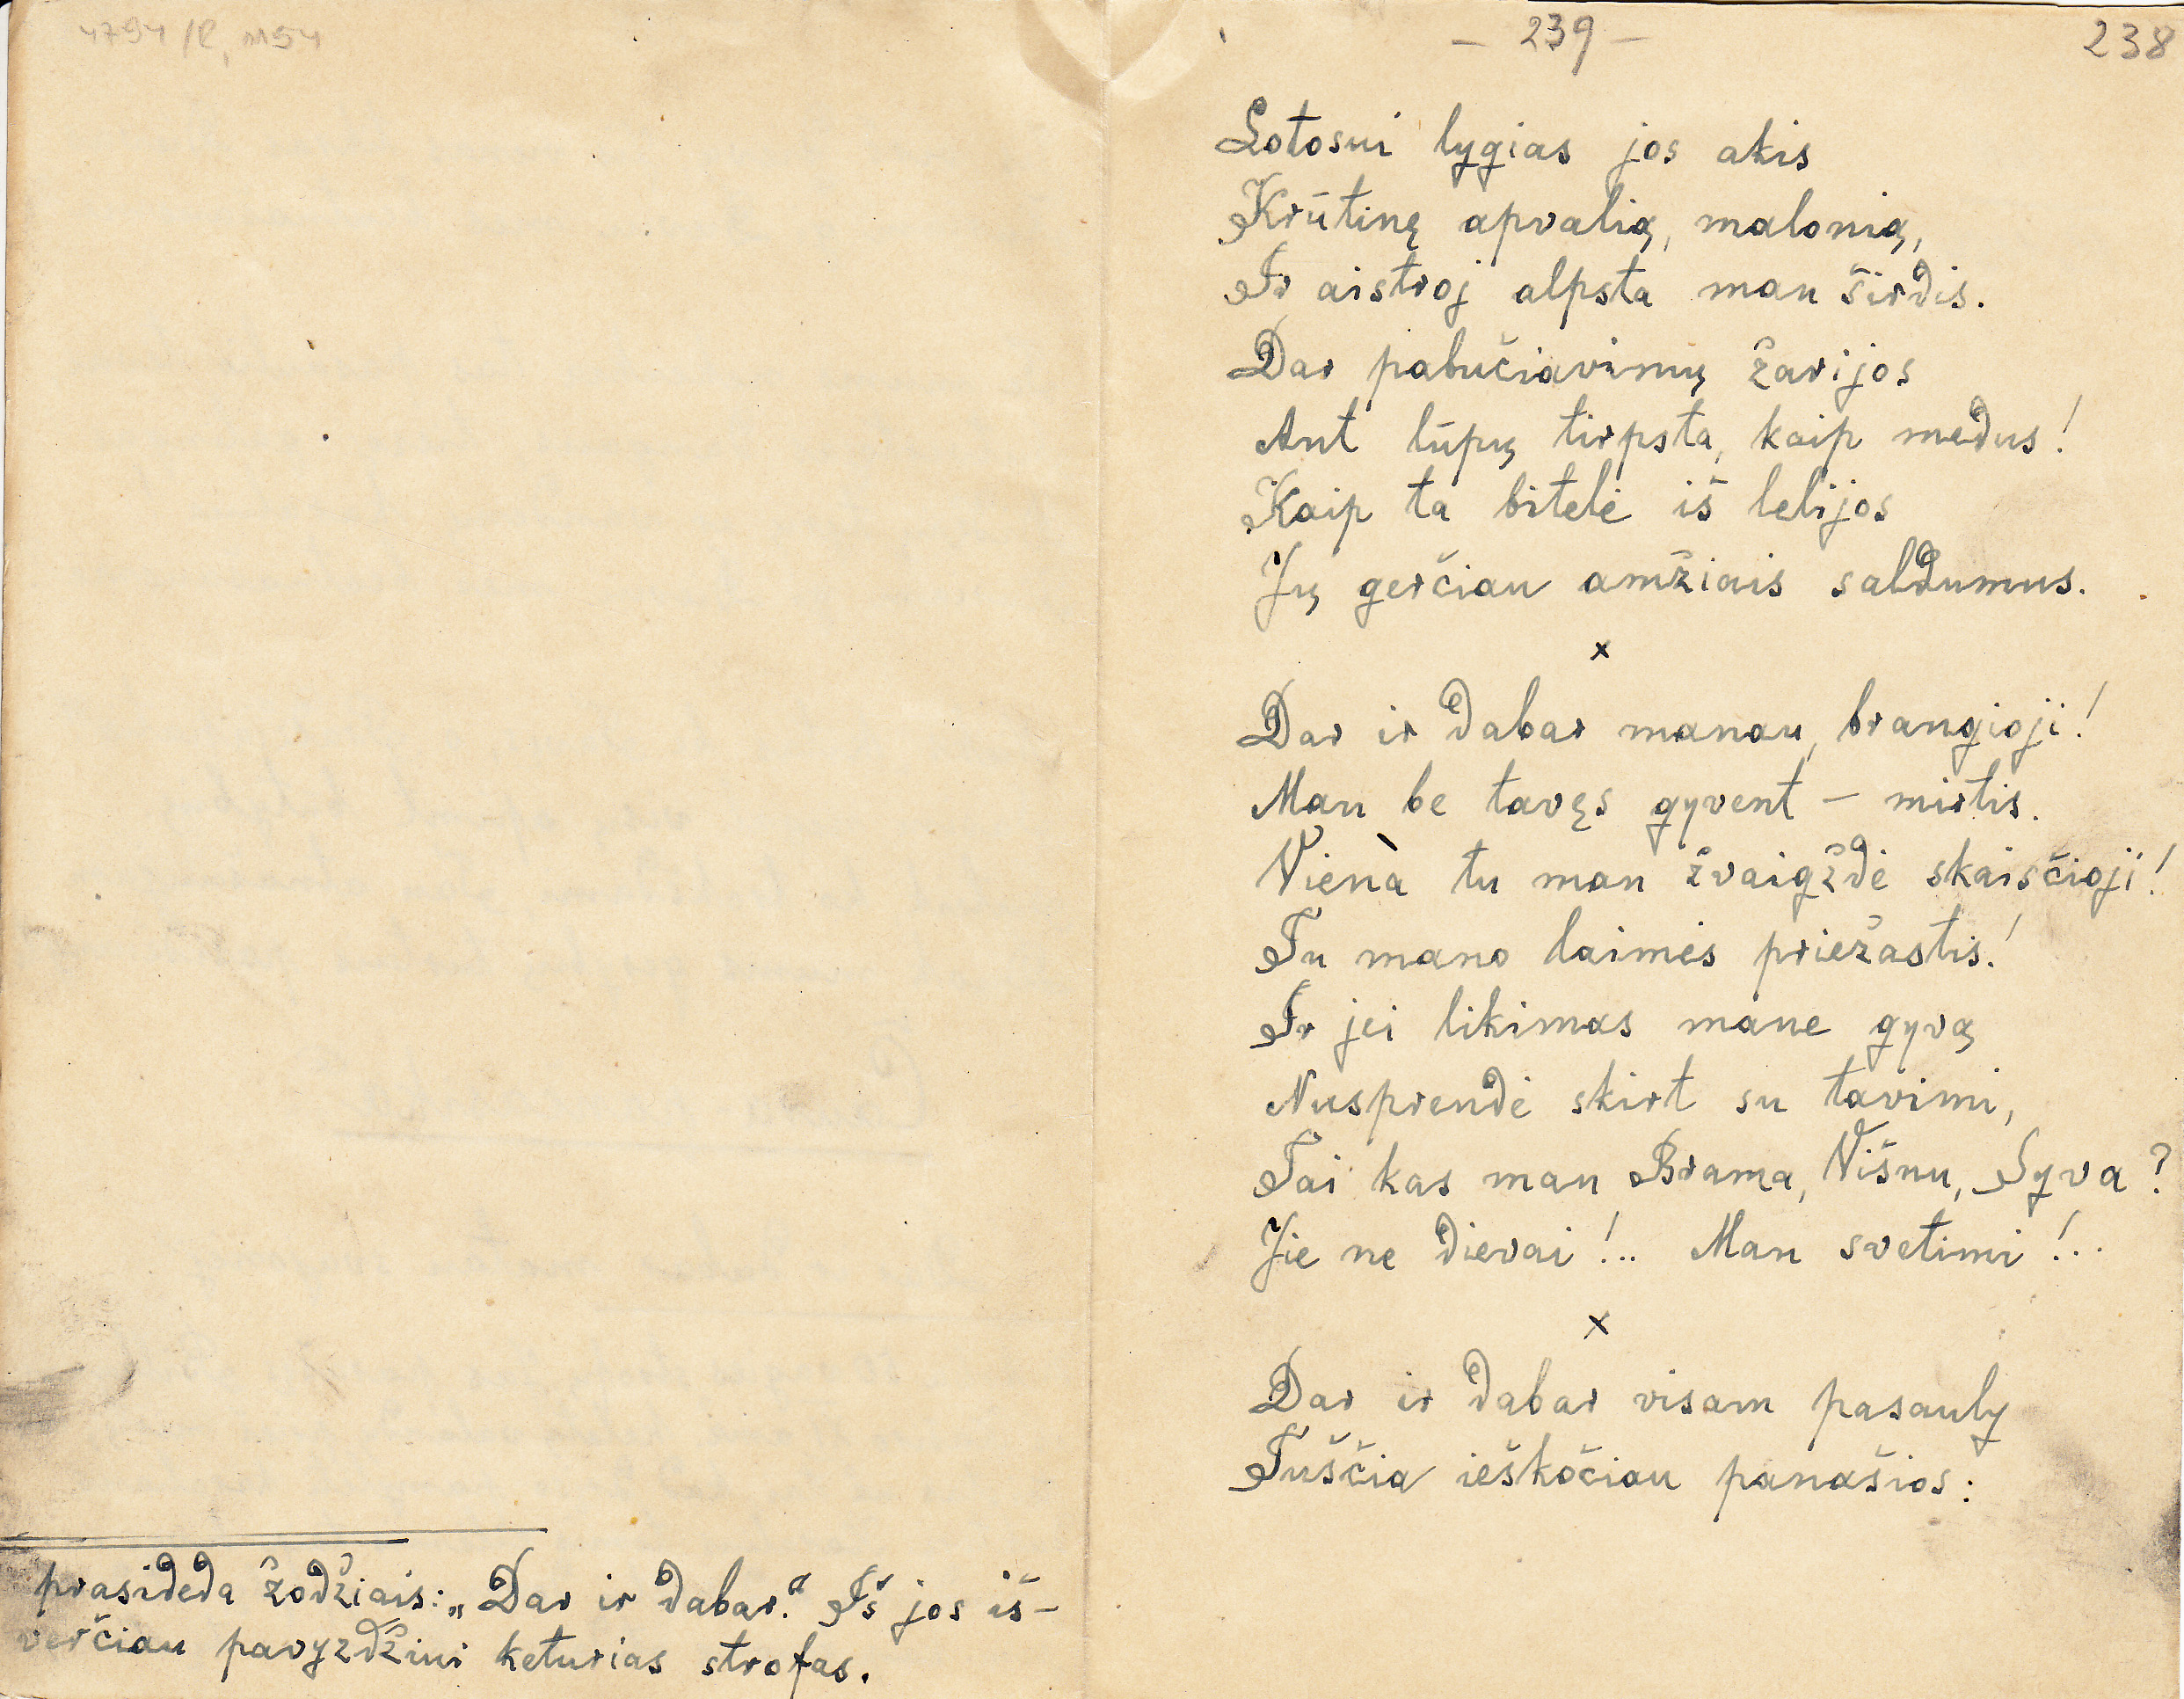 4794/R, M54
prasideda žodžiais: „Dar ir dabar." Iš jos iš-
verčiau pavyzdžiui keturias strofas.
— 239 —
238
Lotosui lygias jos akis
Krūtinę apvalią, malonią,
Ir aistroj alpsta man širdis.
Dar pabučiavimų žarijos
Ant lūpų tirpsta, kaip medus!
Kaip ta bitelė iš lelijos
Jų gerčiau amžiais saldumus.
x
Dar ir dabar manau, brangioji!
Man be tavęs gyvent — mirtis.
Vienà tu man žvaigždė skaisčioji!
Tu mano laimės priežastis!
Ir jei likimas mane gyvą
Nusprendė skirt su tavimi,
Tai kas man Brama, Višnu, Syva?
Jie ne dievai!.. Man svetimi!..
x
Dar ir dabar visam pasauly
Tuščia ieškočiau panašios: